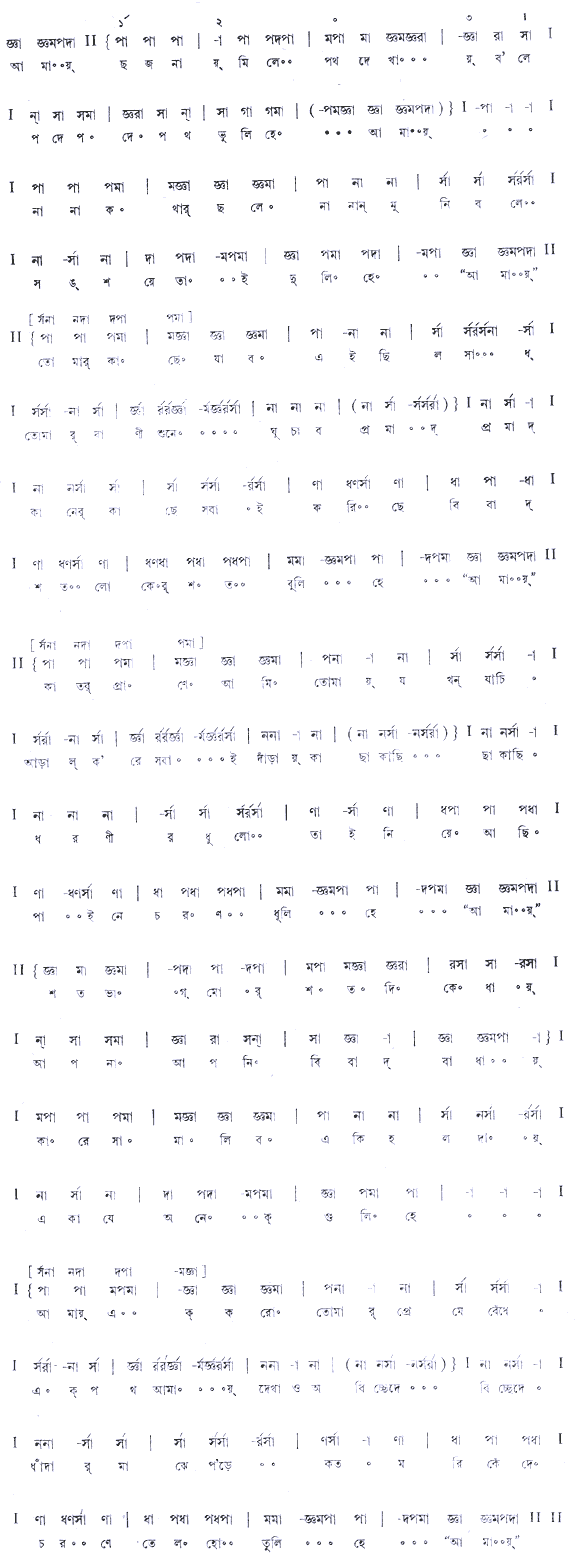 ১´ ২ ০ ৩ ১
জ্ঞা জ্ঞমপদা II {পা পা পা | -া পা পদপা | মপা মা জ্ঞমজ্ঞরা | -জ্ঞা রা সা I
আ মা॰॰য়্ ছ জ না য়্ মি লে॰॰ পথ দে খা॰॰॰ য়্ ব’ লে
I ন্া সা সমা | জ্ঞরা সা ন্া | সা গা গমা | (-পমজ্ঞা জ্ঞা জ্ঞমপদা)} I -পা -া -া I
প দে প॰ দে॰ প থ ভু লি হে॰ ॰॰॰ আ মা॰॰য়্ ॰ ॰ ॰
I পা পা পমা | মজ্ঞা জ্ঞা জ্ঞমা | পা না না | র্সা র্সা র্সর্রর্সা I
না না ক॰ থার্ ছ লে॰ না নান্ মু নি ব লে॰॰
I না -র্সা না | দা পদা -মপমা | জ্ঞা পমা পদা | -মপা জ্ঞা জ্ঞমপদা II
স ঙ্ শ য়ে তা॰ ॰॰ই দু লি॰ হে॰ ॰॰ “আ মা॰॰য়্”
[র্সনা নদা দপা পমা]
II {পা পা পমা | মজ্ঞা জ্ঞা জ্ঞমা | পা -না না | র্সা র্সর্রর্সনা -র্সা I
তো মার্ কা॰ ছে॰ যা ব॰ এ ই ছি ল সা॰॰॰ ধ্
I র্সর্সা -না র্সা | র্জ্ঞা র্রর্রর্জ্ঞা -র্মর্জ্ঞর্রর্সা | না না না | (না র্সা -র্সর্সর্রা)} I না র্সা -া I
তোমা র্ বা ণী শুনে॰ ॰॰॰॰ ঘু চা ব প্র মা ॰॰দ্ প্র মা দ্
I না নর্সা র্সা | র্সা র্সর্সা -র্রর্সা | ণা ধণর্সা ণা | ধা পা -ধা I
কা নের্ কা ছে সবা ॰ই ক রি॰॰ ছে বি বা দ্
I ণা ধণর্সা ণা | ধণধা পধা পধপা | মমা -জ্ঞমপা পা | -দপমা জ্ঞা জ্ঞমপদা II
শ ত॰॰ লো কে॰র্ শ॰ ত॰॰ বুলি ॰॰॰ হে ॰॰॰ “আ মা॰॰য়্”
[র্সনা নদা দপা পমা]
II {পা পা পমা | মজ্ঞা জ্ঞা জ্ঞমা | পনা -া না | র্সা র্সর্সা -া I
কা তর্ প্রা॰ ণে॰ আ মি॰ তোমা য়্ য খন্ যাচি ॰
I র্সর্রা -না র্সা | র্জ্ঞা র্রর্রর্জ্ঞা -র্মর্জ্ঞর্রর্সা | ননা -া না | (না নর্সা -নর্সর্রা)} I না নর্সা -া I
আড়া ল্ ক’ রে সবা॰ ॰॰॰ই দাঁড়া য়্ কা ছা কাছি ॰॰॰ ছা কাছি ॰
I না না না | -র্সা র্সা র্সর্রর্সা | ণা -র্সা ণা | ধপা পা পধা I
ধ র ণী র ধু লো॰॰ তা ই নি য়ে॰ আ ছি॰
I ণা -ধণর্সা ণা | ধা পধা পধপা | মমা -জ্ঞমপা পা | -দপমা জ্ঞা জ্ঞমপদা II
পা ॰॰ই নে চ র॰ ণ॰॰ ধূলি ॰॰॰ হে ॰॰॰ “আ মা॰॰য়্”
II {জ্ঞা মা জ্ঞমা | -পদা পা -দপা | মপা মজ্ঞা জ্ঞরা | রসা সা -রসা I
শ ত ভা॰ ॰গ্ মো ॰র্ শ॰ ত॰ দি॰ কে॰ ধা ॰য়্
I ন্া সা সমা | জ্ঞা রা সন্া | সা জ্ঞা -া | জ্ঞা জ্ঞমপা -া} I
আ প না॰ আ প নি॰ বি বা দ্ বা ধা॰॰ য়্
I মপা পা পমা | মজ্ঞা জ্ঞা জ্ঞমা | পা না না | র্সা নর্সা -র্রর্সা I
কা॰ রে সা॰ মা॰ লি ব॰ এ কি হ ল দা॰ ॰য়্
I না র্সা না | দা পদা -মপমা | জ্ঞা পমা পা | -া -া -া I
এ কা যে অ নে॰ ॰॰ক্ গু লি॰ হে ॰ ॰ ॰
[র্সনা নদা দপা -মজ্ঞা]
I {পা পা মপমা | -জ্ঞা জ্ঞা জ্ঞমা | পনা -া না | র্সা র্সর্সা -া I
আ মায়্ এ॰॰ ক্ ক রো॰ তোমা র্ প্রে মে বেঁধে ॰
I র্সর্রা -না র্সা | র্জ্ঞা র্রর্রর্জ্ঞা -র্মর্জ্ঞর্রর্সা | ননা -া না | (না নর্সা -নর্সর্রা)} I না নর্সা -া I
এ॰ ক্ প থ আমা॰ ॰॰॰য়্ দেখা ও অ বি চ্ছেদে ॰॰॰ বি চ্ছেদে ॰
I ননা -র্সা র্সা | র্সা র্সর্সা -র্রর্সা | ণর্সা -া ণা | ধা পা পধা I
ধাঁদা র্ মা ঝে প’ড়ে ॰॰ কত ॰ ম রি কেঁ দে॰
I ণা ধণর্সা ণা | ধা পধা পধপা | মমা -জ্ঞমপা পা | -দপমা জ্ঞা জ্ঞমপদা II II
চ র॰॰ ণে তে ল॰ হো॰॰ তুলি ॰॰॰ হে ॰॰॰ “আ মা॰॰য়্”